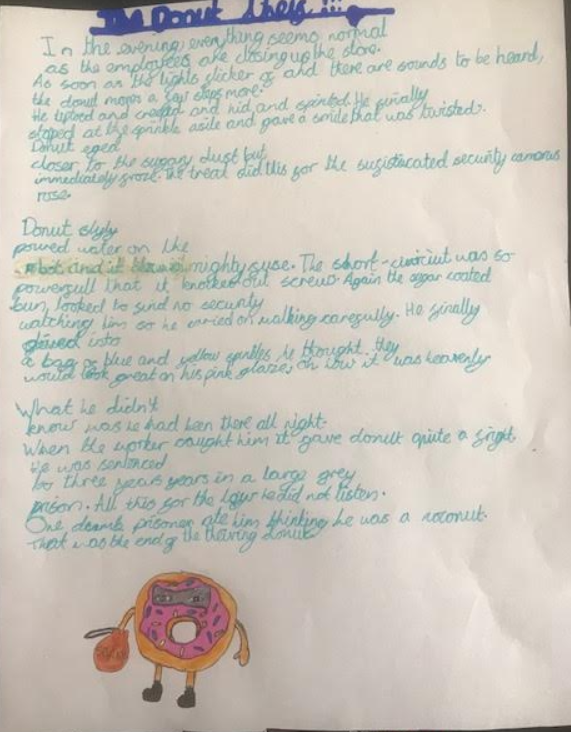 The Donut thief !!!
In the evening, everything seems normal
as the employees are closing up the store.
As soon as the lights flicker of and there are sounds to be heard,
the donut moves a few steps more.
He tiptoed and crawled and hid and sprinted. He finally
stoped at the sprinkle asile and gave a smile that was twisted.
Donut eged
closer to the sugary dust but
immediately froze. The treat did this for the security cameras
rose.
Donut slyly
poured water on the
robot and it mighty fuse. The short-curciut was so
powerfull that it knocked out screws. Again the sugar coated
bun, looked to find no security
watching him so he carried on walking carefully. He finally
into
a bag of blue and yellow he thought they
would look great on his pink glazes oh how it was heavenly
What he didn't
know was he had been there all night.
When the worker caught him it gave donut quite a fright.
He was sentenced
to three years years in a large grey
prison. All this for the he did not listen.
One prisoner ate him thinking he was a coconut.
That was the end of the thieving donut